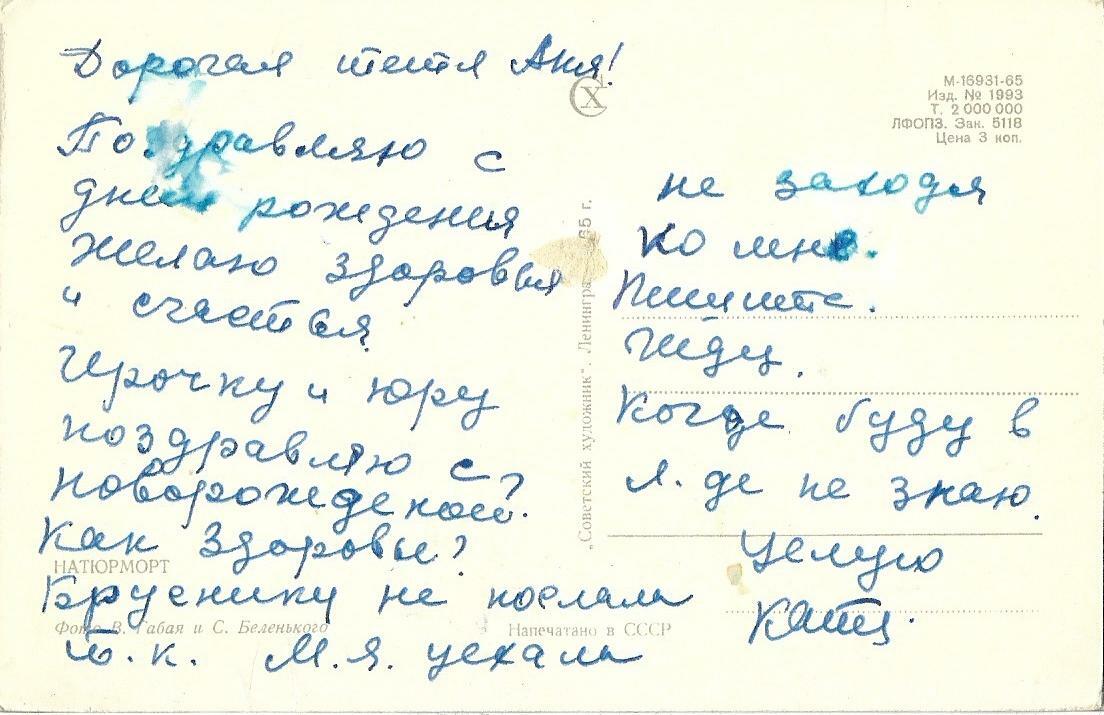 Дорогая тетя Аня!
Поздравляю с
днем рождения
желаю здоровья
и счастья.
Ирочку и Юру
поздравляю с
новорожденой?
Как здоровье?
НАТЮРМОРТ
Бруснику не послала
Фото В. Габая и С. Беленького
Напечатано в СССР
т.к. М.Я. уехала
СХ
„Советский художник". Ленинград 65 г.
М-16931-65
Изд. № 1993
Т. 2 000 000
ЛФОПЗ. Зак. 5118
Цена 3 коп.
не заходя
ко мне.
Пишите.
Жду.
Когда буду в
Л-де не знаю.
Целую
Катя.